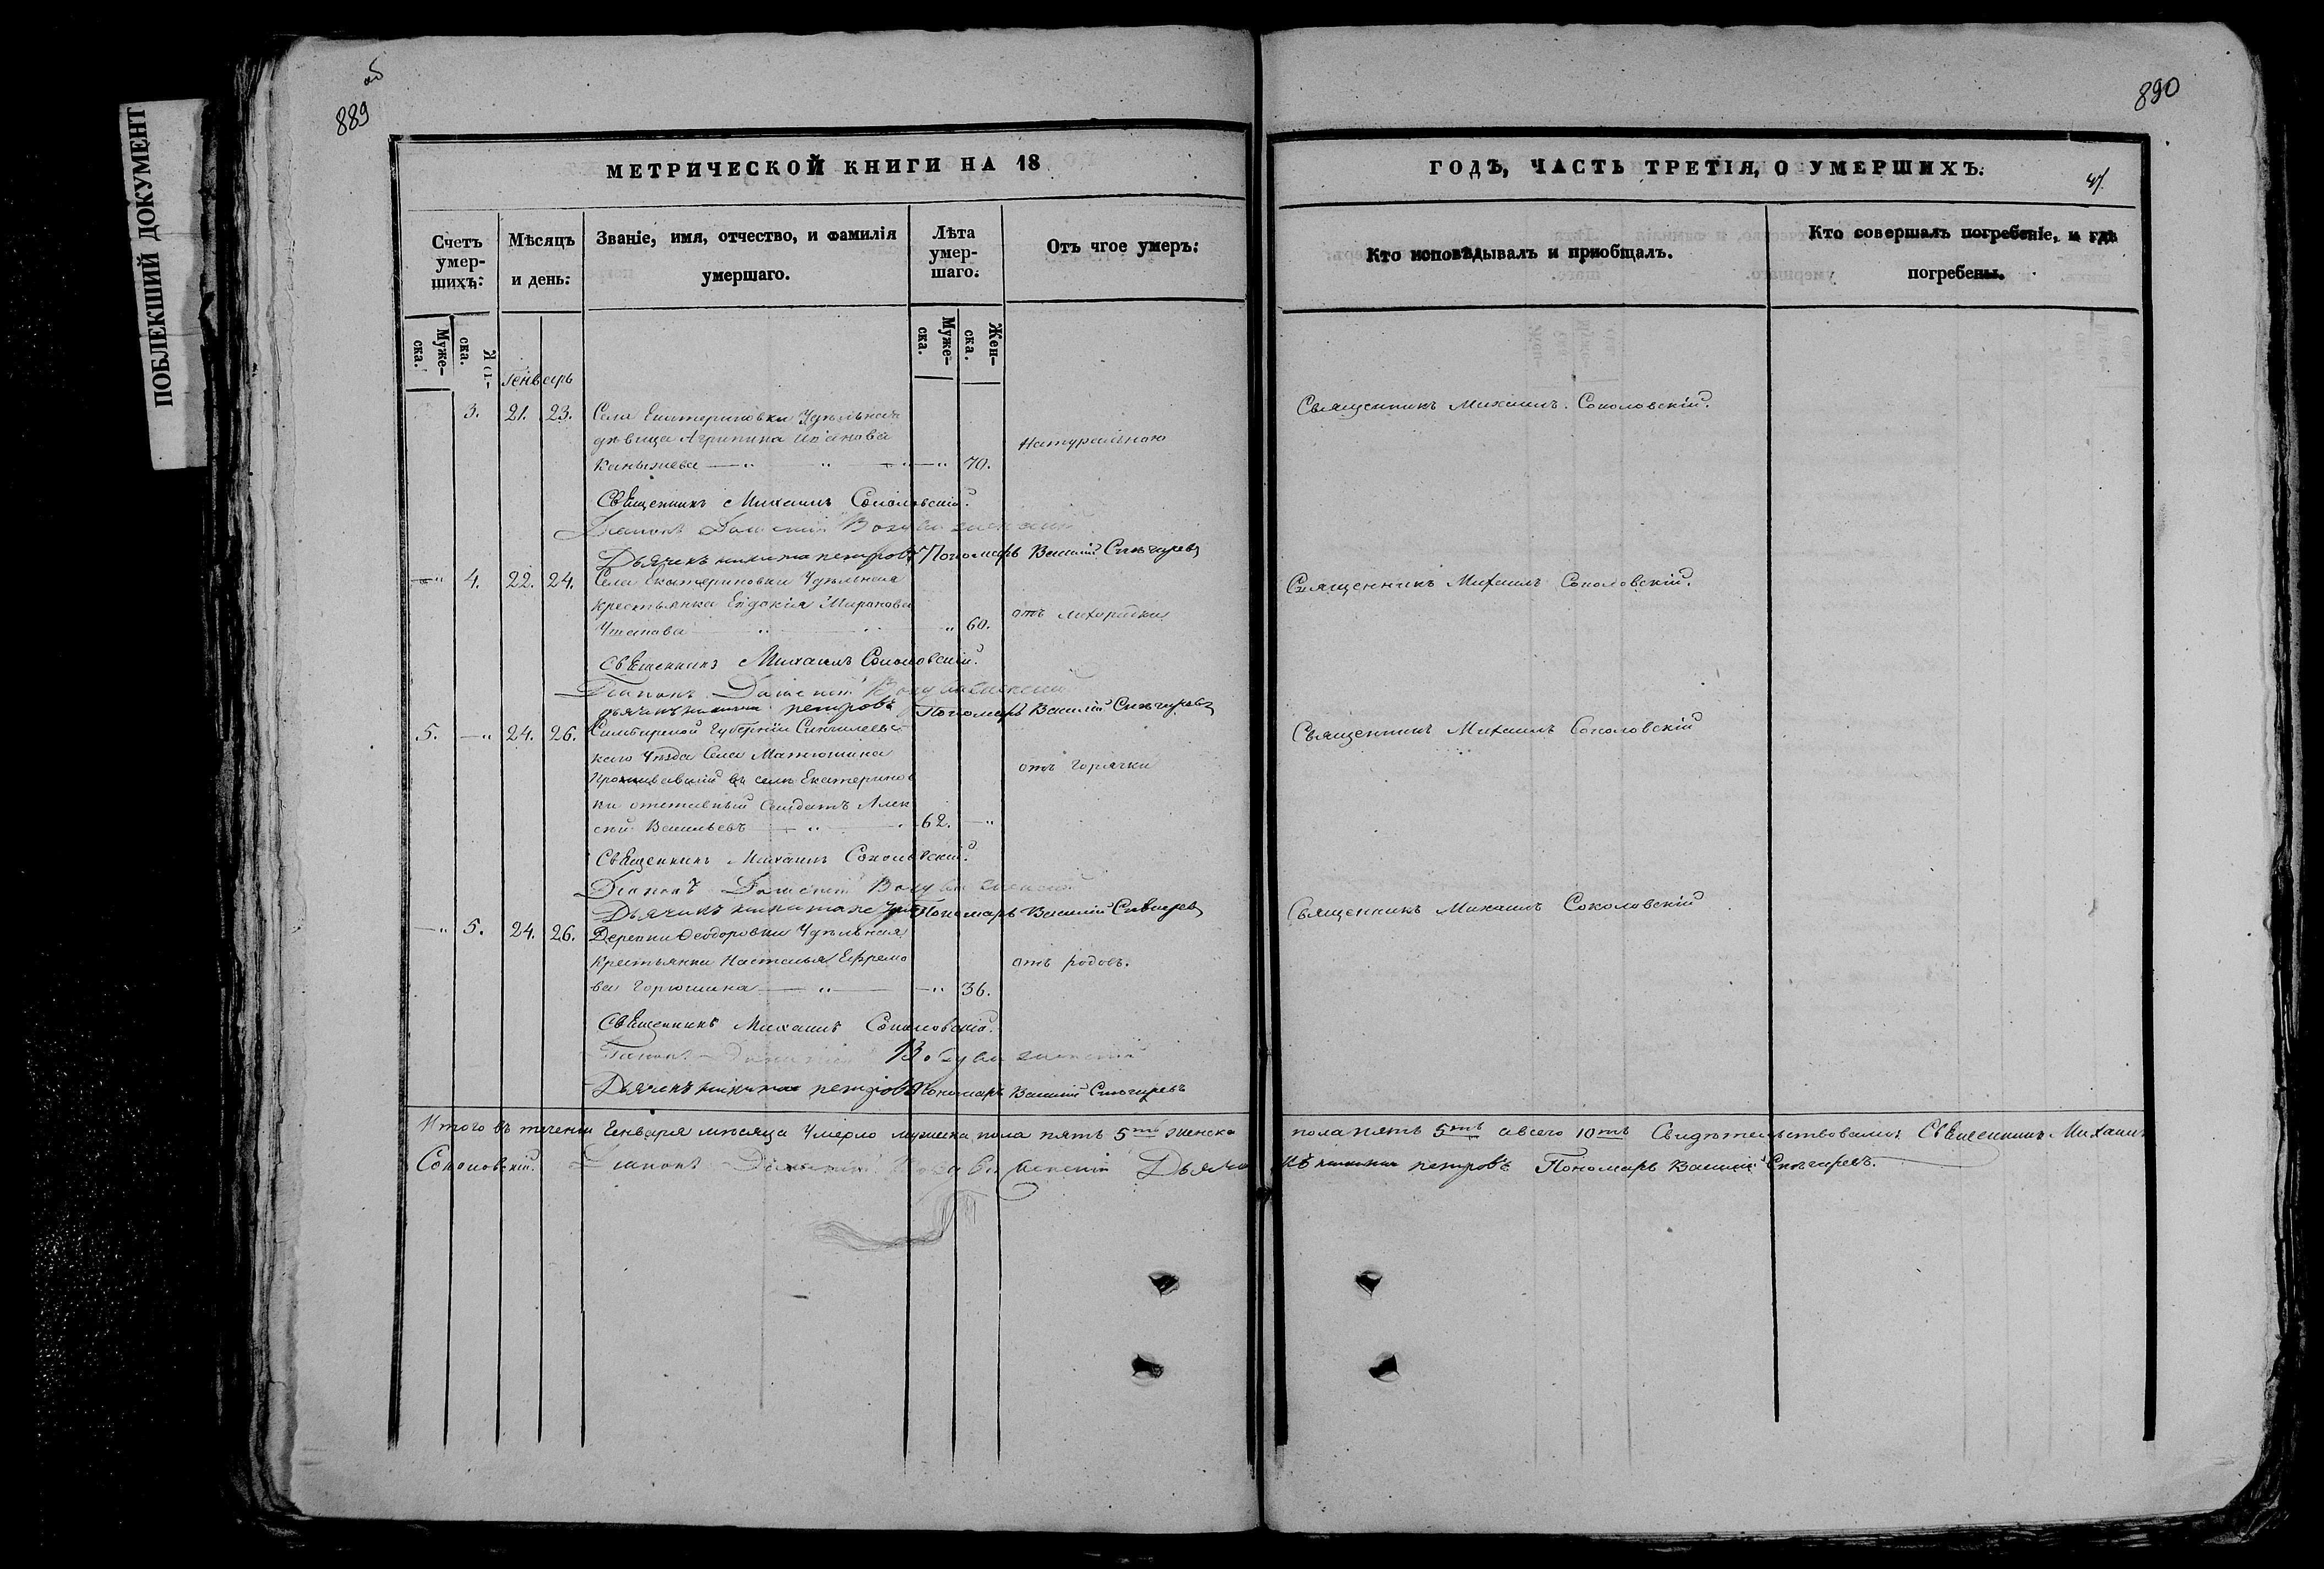 ПОБЛЕКШИЙ ДОКУМЕНТ
об
889
МЕТРИЧЕСКОЙ КНИГИ НА 18
Счетъ умер-шихъ:
Мѣсяцъ и день:
Званіе, имя, отчество, и фамилія умершаго.
Лѣта умер-шаго.
Отъ чгое умеръ:
Муже-ска.
ска.
Муже-ска.
Жен-ска.
Генварь
3. 21. 23. Села Екатериновки Удѣльная
дѣвица Агрипина Иванова
Натуральною
70.
Священникъ Михаилъ Соколовскій.
Діаконъ
Дьячекъ никита петровъ Пономарь Василій Снѣгиревъ
4. 22. 24. Села Екатериновки Удѣльная
крестьянка Евдокія Миронова
отъ лихорадки
60.
Священникъ Михаилъ Соколовскій.
Діаконъ
дьячекъ никита петровъ Пономарь Василій Снѣгиревъ
5. 24. 26. Симбирской Губерніи Сингилеевс
каго Уѣзда Села Матюшкина
Проживавший въ селѣ Екатеринов
отъ горячки
ки отставный Солдатъ Алек
сѣй Васильевъ 62.
Священникъ Михаилъ Соколовскій.
Діаконъ
Дьячекъ никита Пономарь Василій Снѣгиревъ
5. 24. 26. Деревни Ѳеодоровки Удѣльная
Крестьянка Наталья Ефремо
отъ родовъ.
ва Горюшина 36.
Священникъ Михаилъ Соколовскій.
Дьячекъ никита петровъ Пономарь Василій Снѣгиревъ
Итого въ теченіи Генваря мѣсяца Умерло мужеска пола пять 5ть женска
Соколовскій. Діаконъ Дьяче
890
ГОДЪ, ЧАСТЬ ТРЕТІЯ, О УМЕРШИХЪ.
47.
Кто исповѣдывалъ и пріобщалъ.
Кто совершалъ погребеніе, и гдѣ погребены.
Священникъ Михаилъ Соколовскій.
Священникъ Михаилъ Соколовскій.
Священникъ Михаилъ Соколовскій
Священникъ Михаилъ Соколовскій
пола пять 5ть а всего 10ть Свидѣтельствовали: Священникъ Михаилъ
къ никита петровъ Пономарь Василій Снѣгиревъ.